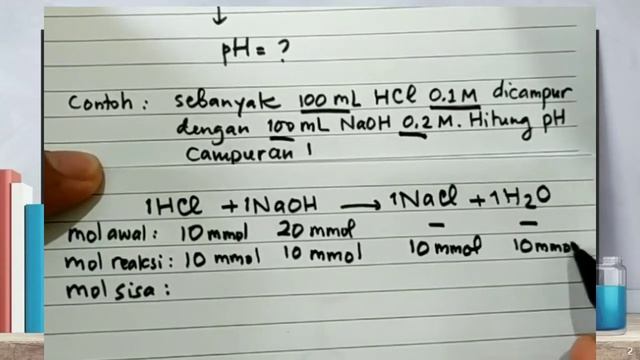 pH = ?
Contoh : sebanyak 100 mL HCl 0.1 M dicampur
dengan 100 mL NaOH 0,2 M. Hitung pH
Campuran !
1HCl + 1NaOH → 1NaCl + 1H₂O
mol awal : 10 mmol 20 mmol - -
mol reaksi : 10 mmol 10 mmol 10 mmol 10 mmol
mol sisa :
2